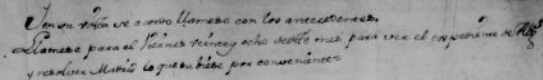 Y en su vista se acordo llamese con los antecedentes.
Llamese para el Viernes veinte y ocho de este mes para ver el expediente de
y resolver Maria lo que tubiese por conveniente